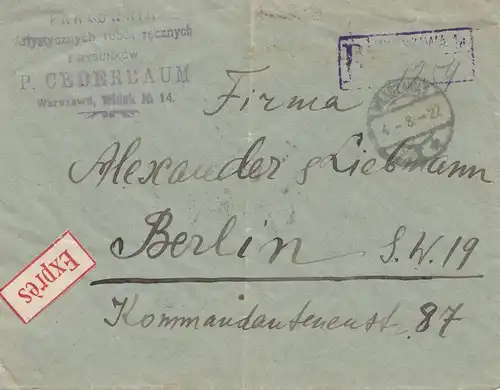 PRACOWNIA
Artystycznych robót ręcznych
i RYSUNKÓW
P. CEDERBAUM
Warszawa, Widok № 14.
R
1254
4.-8.-22
Firma
Alexander & Liebmann
Berlin S.W. 19
Exprès
Kommandantenenst. 87